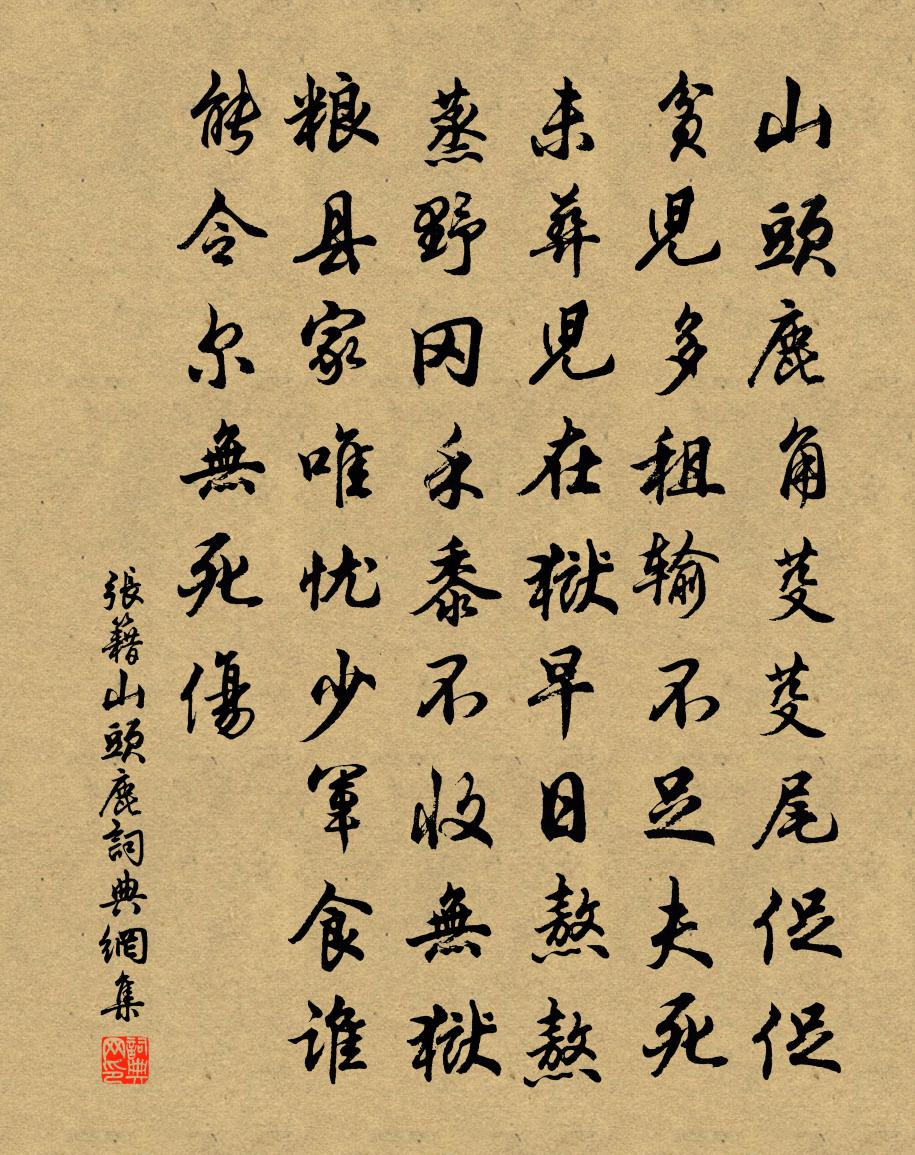 山頭鹿角芟芟尾促促
貧兒多租输不足夫死
未葬兒在獄早日熬熬
蒸野冈禾黍不收無獄
粮县家唯忧少軍食誰
能令尔無死傷
張籍山頭鹿詞典網集
詞典网印